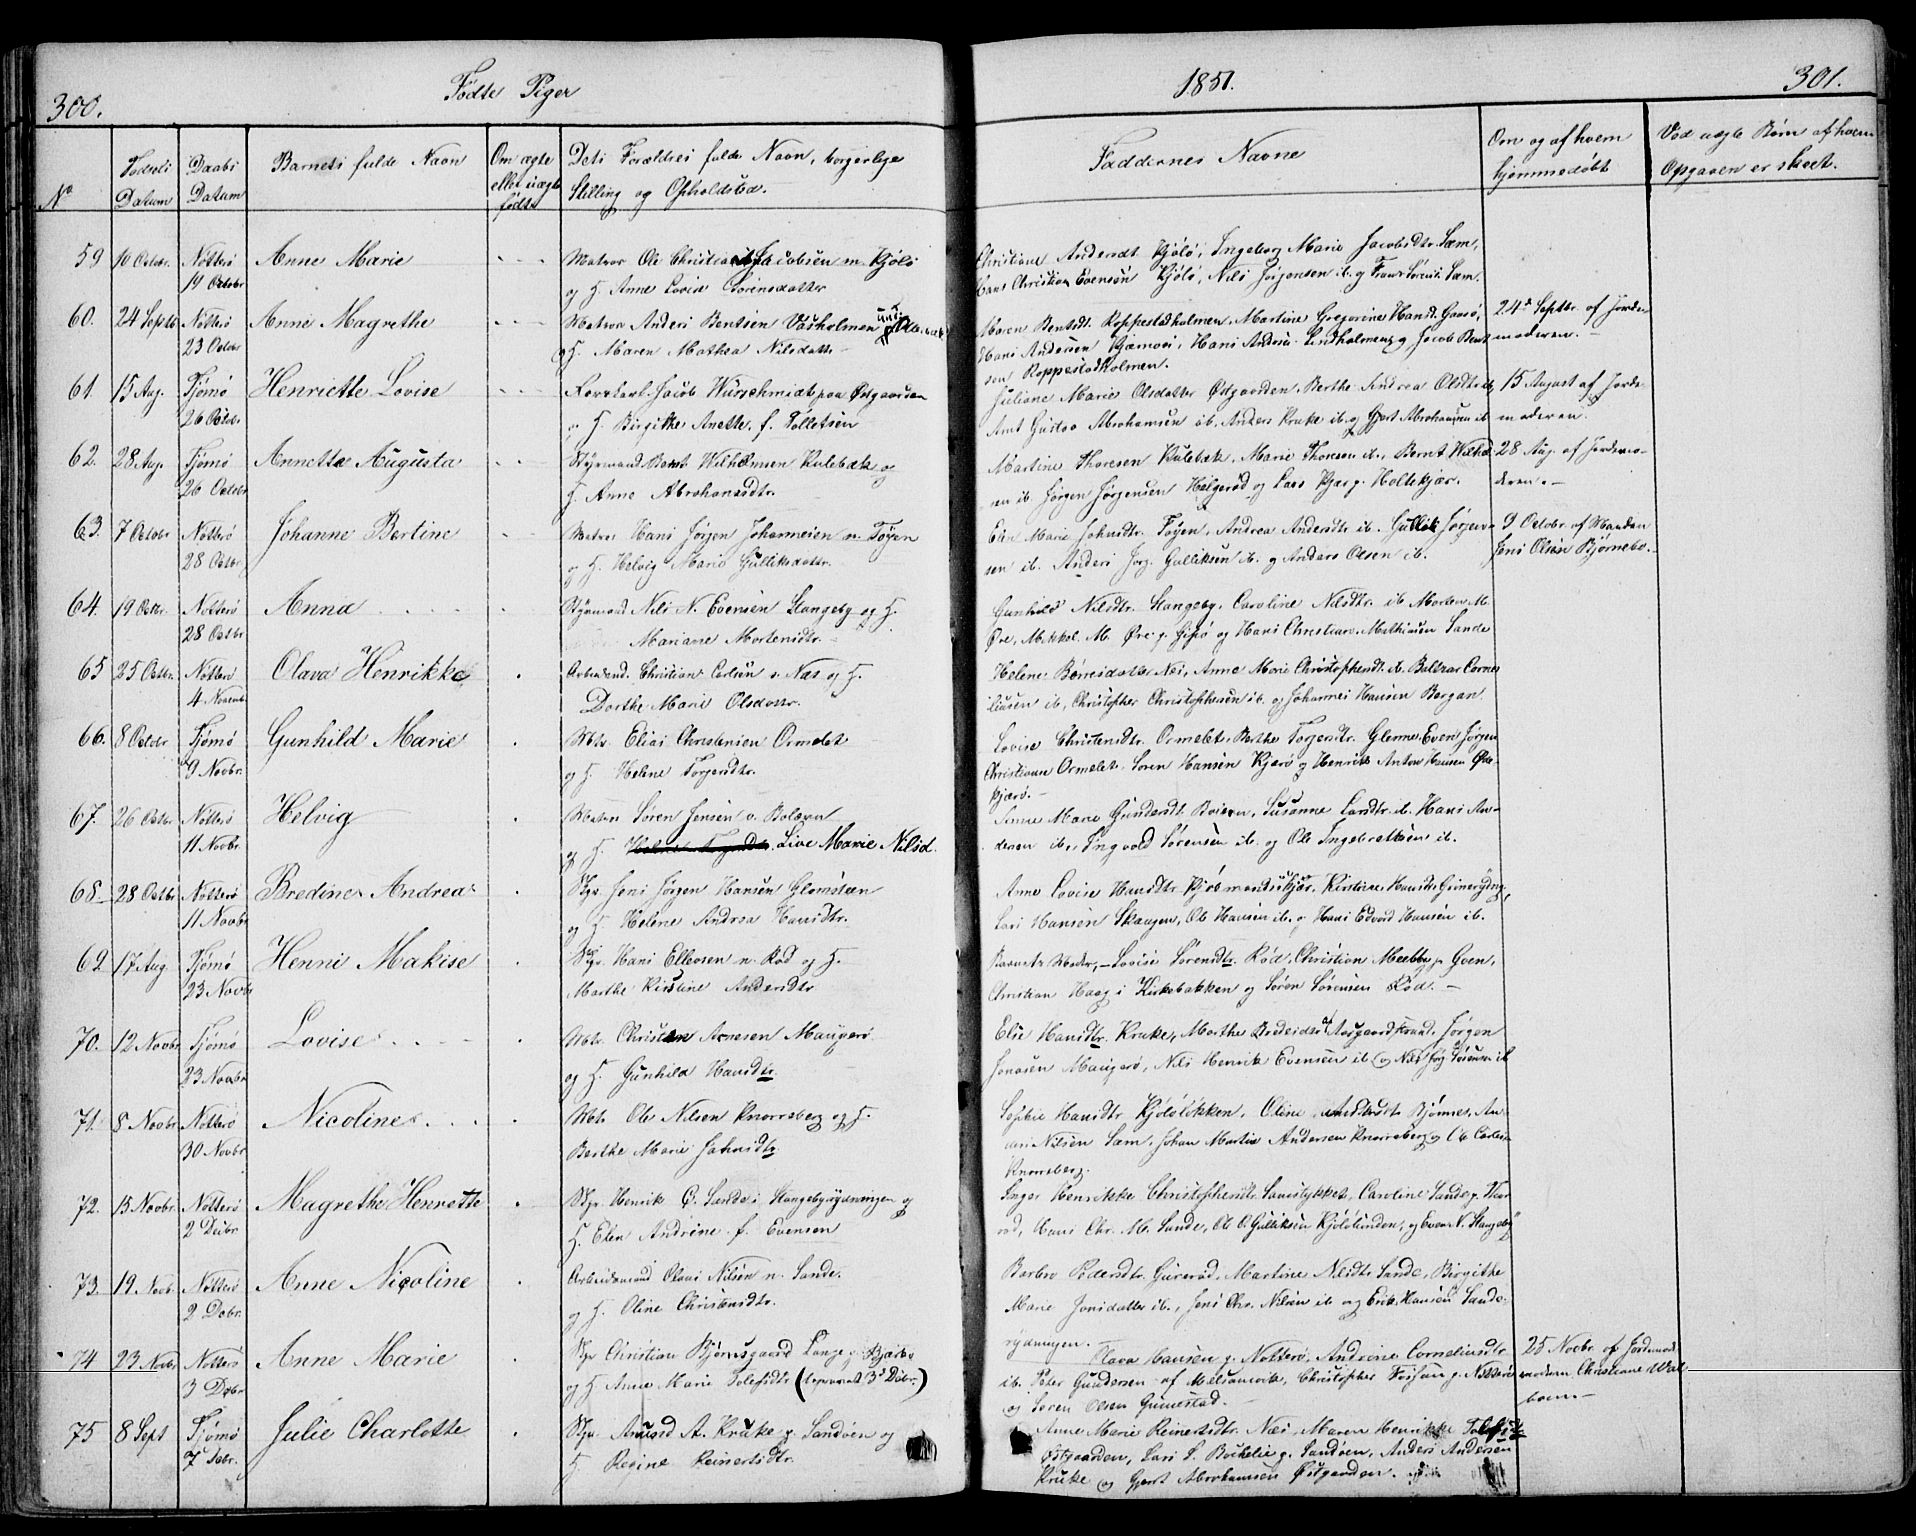 300.
Fødte Piger
1851.
301.
No
Fødsels Datum
Daabs Datum
Barnets fulde Navn
Om ægte eller uægte født
Dets Forældres fulde Navn, borgerlige Stilling og Opholdssted.
Faddernes Navne
Om og af hvem hjemmedøbt
Ved uægte Børn af hvem Opgaven er skeet.
59 10 Octobr. Nøtterø 19 Octobr Anne Marie
Matros Ole Christian Jacobsen n. Kjølø
og H. Anne Lovise Sørensdatter
Christiane Andersdt Kjølø, Ingeborg Marie Jacobsdtr. Sem,
Hans Christian Evensen Kjølø, Nils Jørgensen ib. og Frans Sørens. Sem.
60. 24 Septb Nøtterø 23 Octobr Anne Magrethe
Matros Anders Bentsen Vasholmen
og H. Maren Mathea Nilsdatt.
Maren Bentsdt. Roppestadholmen, Martine Gregorine Hansd. Gaasø,
Hans Andersen Hans Anders. Lindholmen og Jacob Bent
sen Roppestadholmen.
24de Septbr. af Jorde
moderen.
61. 15 Aug. Tjømø 26 Octobr Henriette Lovise
Jacob Würschmidt paa Østgaarden
og H. Birgitte Anette f. Tollefsen
Juliane Marie Olsdatter Østgaarden, Berthe Andrea Olsdtr ib,
Amt Gustav Abrahamsen ib. Anders Kruke ib. og Gjert Abrahamsen ib
15 August af Jorde
moderen.
62. 28 Aug. Tjømø 26 Octobr Annette Augusta
Styrmand Bernt Wilhelmsen Kulebæk og
H. Anne Abrahamsdtr.
Martine Thoresen Kulebæk, Marie Thoresen ib., Bernt Wilhel
sen ib. Jørgen Jørgensen Helgerød og Lars Kjær g. Holtekjær.
28 Aug. af Jordemo-
deren.
63. 7 Octobr Nøtterø 28 Octbr. Johanne Bertine
Matros Hans Jørgen Johannesen n. Føyen
og H. Helvig Marie Gulliksdattr.
Elen Marie Johnsdtr Føyen, Andrea Andersdtr ib. Gullik Jørgen
sen ib. Anders Jørg. Gulliksen ib. og Anders Olsen ib.
9 Octobr. af Manden
Jens Olsen Bjørnebo.
64. 19 Octbr. Nøtterø 28 Octbr Anna
Styrmand Nils N. Evensen Stangeby og H.
Mariane Mortensdtr.
Gunhild Nilsdtr. Stangeby, Caroline Nilsdtr. ib Morten M.
Øre, Mikkel M. Øre g. Gipø og Hans Christian Mathisen Sande
65 25 Octbr. Nøtterø 4 Novemb. Olava Henrikke
Arbmand. Christian Carlsen v. Næs og H.
Dorthe Marie Olsdattr.
Helene Børresdatter Næs, Anne Marie Christophersdt. ib. Baltzar Corne
liusen ib, Christopher Christophersen ib. og Johannes Hansen Bergan.
66. 8 Octobr Tjømø 9 Novbr. Gunhild Marie
Mtr. Elias Christensen Ormelet
og H. Helene Torgersdtr.
Lovise Christensdtr. Ormelet, Berthe Torgersdtr. Glenne, Even Jørgen
Christiansen Ormelet. Søren Hansen Kjærø og Henrik Anton Hansen Øde
kjærø.
67. 26 Octbr Nøtterø 11 Novbr. Helvig
Matros Søren Jensen v. Bolæren
og H. Live Marie Nilsd.
Anne Marie Gundersdt. Bolæren, Susanne Larsdtr. ib. Hans An-
dersen ib., Ingvald Sørensen ib. og Ole Ingebretsen ib.
68. 28 Octbr Nøtterø 11 Novbr Bredine Andrea
Skpr. Jens Jørgen Hansen Glomsteen
og H. Helene Andrea Hansdtr.
Anne Lovise Hansdtr. Kjøbmandskjær, Kirstine Hansdtr Grimerydng,
Lars Hansen Skaugen, Ole Hansen ib. og Hans Edvard Hansen ib.
69 17 Aug. Tjømø 23 Novbr Henne Makise
Skpr. Hans Ellevsen n. Rød og H.
Marthe Kirstine Andersdtr
Barnets Moder, Lovise Sørensdtr. Rød, Christian Meebby g. Goen,
Christian Haag i Kirkebakken og Søren Sørensen Rød.
70. 12 Novbr. Tjømø 23 Novbr Lovise
Mtr. Christen Arnesen Maugerø
og H. Gunhild Hansdtr
Elise Hansdtr. Kruke, Marthe Aasgaardstrand, Jørgen
Jonasen Maugerø, Nils Henrik Evensen ib. og Nils Jørg Sørensen ib
71. 8 Novbr Nøtterø 30 Novbr Nicoline
Mtr. Ole Nilsen Knorreberg og H.
Berthe Marie Johnsdtr
Sophie Hansdtr Kjøløløkken, Oline Andersdt. Bjønnes, An-
ders Nilsen Sem, Johan Martin Andersen Knorreberg og Ole Carlsen
Knorreberg.
72. 15 Novbr. Nøtterø 2 Decbr. Magrethe Henrette
Skpr. Henrik C. Sande i Stangebyrydningen og
H. Elen Andrine f. Evensen
Inger Henrikke Christophersdtr. Sandstykket, Caroline Sande g. Nor
rød, Hans Chr. M. Sande, Ole O. Gulliksen Kjøløbunden, og Even N. Stangeby
73. 19 Novb. Nøtterø 2 Decbr. Anne Nicoline
Arbeidsmand Olaus Nilsen n. Sande.
og H. Oline Christensdtr.
Barbro Pedersdtr. Guserød, Martine Nilsdtr Sande, Birgithe
Marie Jonsdatter ib., Jens Chr. Nilsen ib og Erik Hansen Sande-
rydningen.
74 23 Novbr Nøtterø 3 Decbr Anne Marie
Skpr Christian Bjørnsgaard Lange g. Bjærbo
og H. Anne Marie Tollefsdtr (separeret 3 Decbr.)
Olava Hansen g. Nøtterø, Andrine Corneliusdtr
ib. Peter Gundersen af Melsomvik, Christopher Foijnen g. Nøtterø
og Søren Olsen Gunnestad.
25 Novbr. af Jordemod
moderen Christiane Wal
boum.
75 8 Sept Tjømø 7de Decbr. Julie Charlotte
Skpr. Anund A. Kruke g. Sandøen og
H. Regine Reinertsdtr.
Anne Marie Reinertsdtr. Næs, Maren Henrikke Tollefsdtr
Østgaarden, Lars L. Bockelie g. Sandøen, Anders Andersen
Kruke og Gjert Abrahamsen Østgaarden.